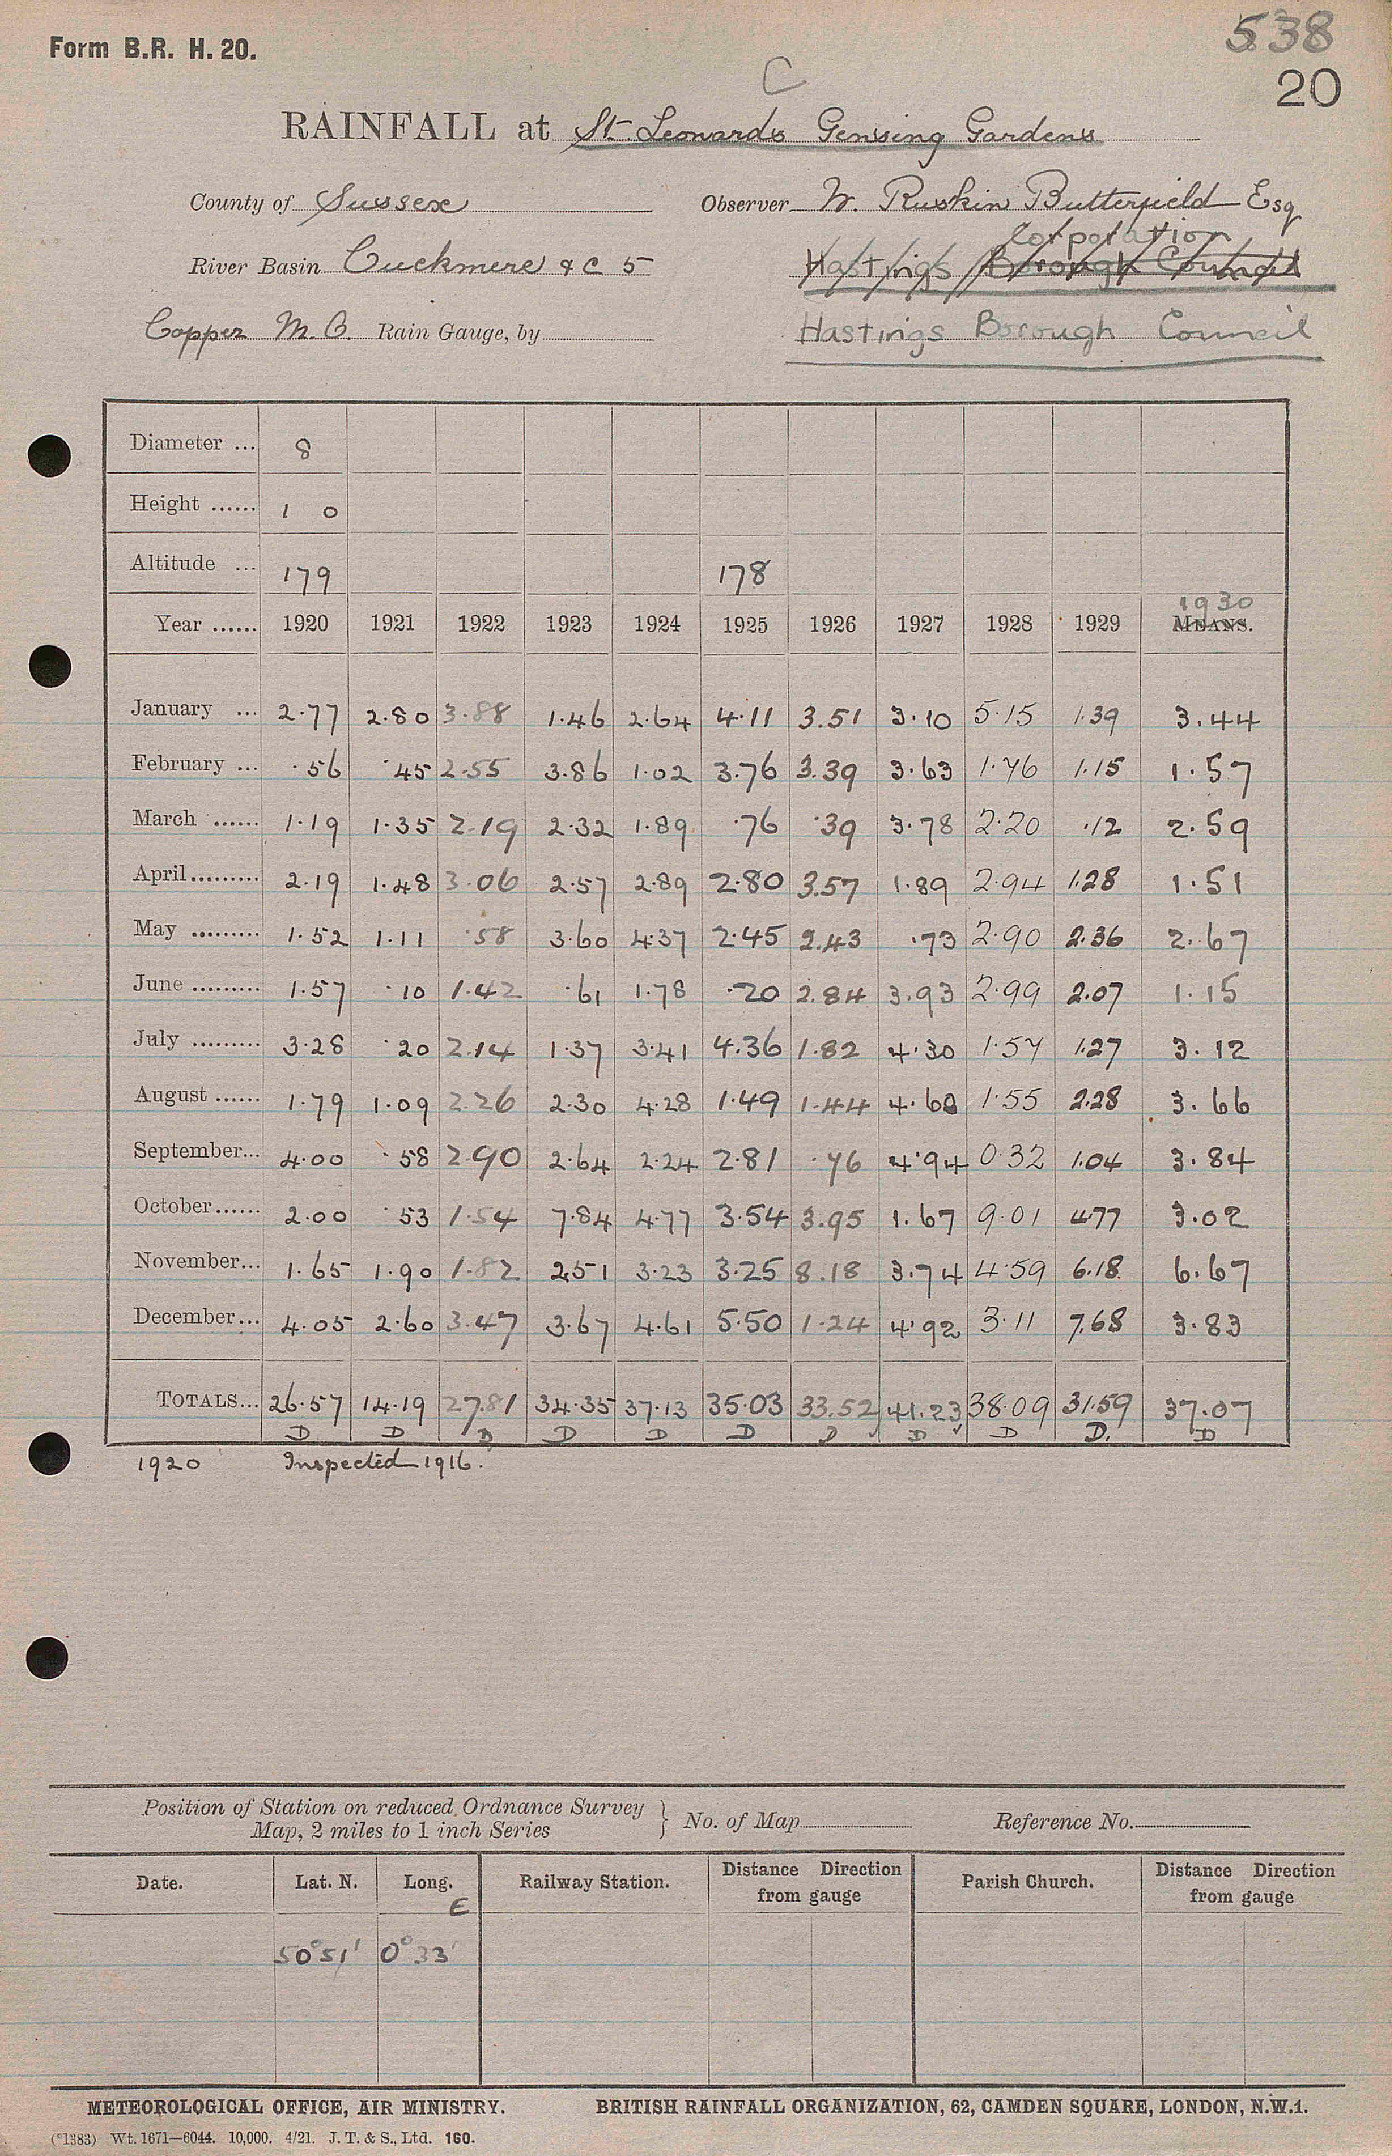 538
Form B.R. H. 20.
20
C
RAINFALL at St Leonards Gensing Gardens
County of Sussex Observer W. Ruskin Butterfield Esq
Corporation
River Basin Cuckmere &c 5 Hastings Borough Council
Copper M.O. Rain Gauge, by Hastings Borough Council
Diameter ... 8
Height ...... 1 0
Altitude ... 179 178
1930
Year ...... 1920 1921 1922 1923 1924 1925 1926 1927 1928 1929 MEANS.
January ... 2.77 2.80 3.88 1.46 2.64 4.11 3.51 3.10 5.15 1.39 3.44
February ... .56 .45 2.55 3.86 1.02 3.76 3.39 3.63 1.76 1.15 1.57
March ...... 1.19 1.35 2.19 2.32 1.89 .76 .39 3.78 2.20 .12 2.59
April......... 2.19 1.48 3.06 2.57 2.89 2.80 3.57 1.89 2.94 1.28 1.51
May ......... 1.52 1.11 .58 3.60 4.37 2.45 2.43 .73 2.90 2.36 2.67
June ......... 1.57 .10 1.42 .61 1.78 .20 2.84 3.93 2.99 2.07 1.15
July ......... 3.28 .20 2.14 1.37 3.41 4.36 1.82 4.30 1.57 1.27 3.12
August ...... 1.79 1.09 2.26 2.30 4.28 1.49 1.44 4.60 1.55 2.28 3.66
September... 4.00 .58 2.90 2.64 2.24 2.81 .76 4.94 0.32 1.04 3.84
October...... 2.00 .53 1.54 7.84 4.77 3.54 3.95 1.67 9.01 4.77 3.02
November... 1.65 1.90 1.82 2.51 3.23 3.25 8.18 3.74 4.59 6.18 6.67
December... 4.05 2.60 3.47 3.67 4.61 5.50 1.24 4.92 3.11 7.68 3.83
TOTALS... 26.57 14.19 27.81 34.35 37.13 35.03 33.52 41.23 38.09 31.59 37.07
D D D D D D D D D D. D
1920 Inspected 1916.
Position of Station on reduced Ordnance Survey
Map, 2 miles to 1 inch Series } No. of Map Reference No.
Date. Lat. N. Long. E Railway Station. Distance Direction from gauge Parish Church. Distance Direction from gauge
50°51' 0°33'
METEOROLOGICAL OFFICE, AIR MINISTRY. BRITISH RAINFALL ORGANIZATION, 62, CAMDEN SQUARE, LONDON, N.W.1.
(*1383) Wt. 1671—6044. 10,000. 4/21. J. T. & S., Ltd. 160.